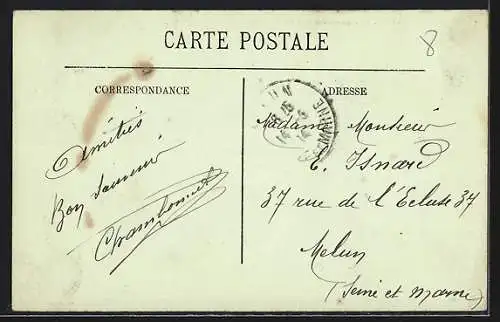 CARTE POSTALE
8
CORRESPONDANCE
ADRESSE
Amitiés
Bon souvenir
Chambonnet
Madame Monsieur
E. Isnard
37 rue de l'Ecluse 37
Melun
(Seine et Marne)